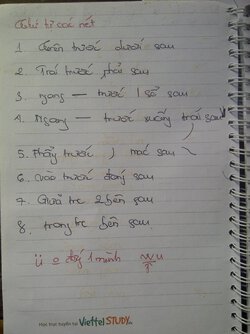 Thứ tự các nét
1. Trên trước dưới sau
2. Trái trước phải sau
3. ngang — trước | sổ sau
4. Ngang — trước xuống trái sau
5. Phẩy trước ) mác sau \
6. vào trước đóng sau
7. Giữa trc 2 bên sau
8. trong trc bên sau
ü o đg 1 mình
Học trực tuyến tại ViettelSTUDY.vn